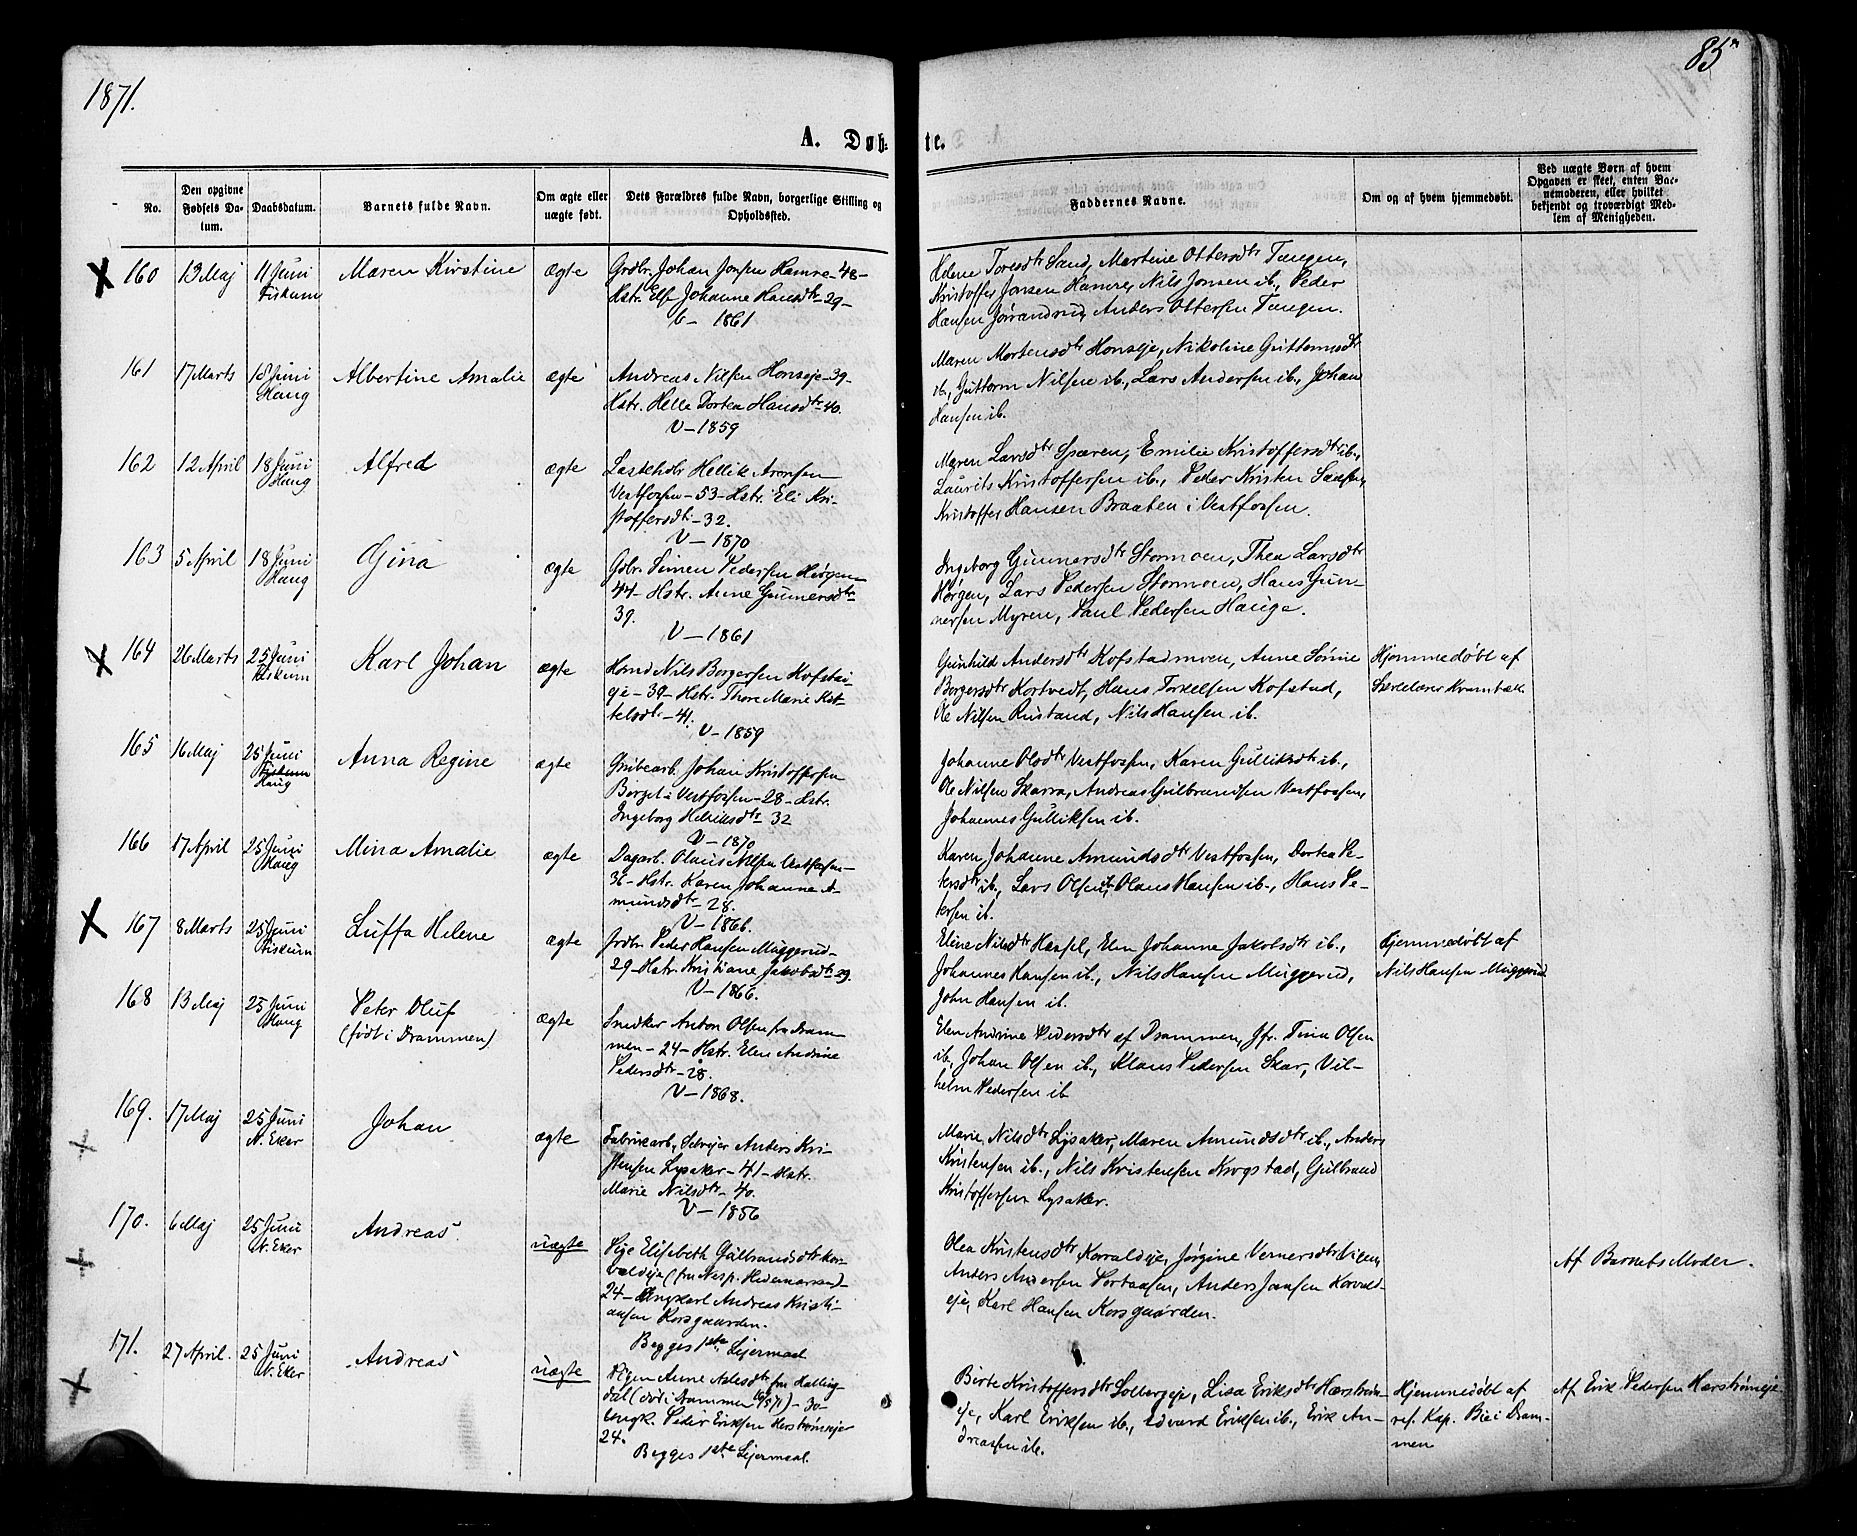 1871.
85
A. Døb-
te.
No.
Den opgivne Fødsels Da-tum.
Daabsdatum.
Barnets fulde Navn.
Om ægte eller uægte født.
Dets Forældres fulde Navn, borgerlige Stilling og Opholdssted.
Faddernes Navne.
Om og af hvem hjemmedøbt.
Ved uægte Børn af hvem Opgaven er skeet, enten Bar-nemoderen, eller hvilket bekjendt og troværdigt Med-lem af Menigheden.
160 13 Maj 11 Juni Fiskum Maren Kirstine ægte
Grdbr. Johan Jonsen Hamre - 48 -
Hstr. Else Johanne Hansdtr - 29 -
1861
Helene Toresdtr Sand, Martine Ottersdtr Tangen,
Kristoffer Jonsen Hamre, Nils Jonsen ib., Peder
Hansen Jørandrud, Anders Ottersen Tangen.
161 17 Marts 18 Juni Haug Albertine Amalie ægte
Andreas Nilsen Honseje - 39 -
Hstr. Helle Dortea Hansdtr - 40.
V - 1859
Maren Mortensdtr Honseje, Nikoline Guttormsdtr
ib., Guttorm Nilsen ib., Lars Andersen ib., Johan
Hansen ib.
162 12 April 18 Juni Haug Alfred ægte
Hellik Aronsen
Vestfossen - 53 - Hstr. Eli Kri-
stoffersdtr - 32.
V - 1870
Maren Larsdtr Spæren, Emilie Kristoffersdtr ib.,
Laurits Kristoffersen ib., Peder Kristen
Kristoffer Hansen Braaten i Vestfossen.
163 5 April 18 Juni Haug Gina ægte
Gbr. Simen Pedersen Hørgen
44 - Hstr. Anne Gunnersdtr
39.
V - 1861
Ingeborg Gunnersdtr Stormoen, Thea Larsdtr
Hørgen, Lars Pedersen Stormoen, Hans Gun-
nersen Myren, Paul Pedersen Hauge.
164 26 Marts 25 Juni Fiskum Karl Johan ægte
Hsmd Nils Borgersen Hofstad-
eje - 39 - Hstr. Thore Marie Kit-
telsdtr - 41.
V - 1859
Gunhild Andersdtr Kofstadmoen, Anne
Borgersdtr Kortvedt, Hans Torkelsen Kofstad,
Ole Nilsen Rustand, Nils Hansen ib.
Hjemmedøbt af
165 16 Maj 25 Juni Fiskum Haug Anna Regine ægte
Grubearb. Johan Kristoffersen
Berget i Vestfossen - 28 - Hstr.
Ingeborg Helliksdtr - 32
V - 1870
Johanne Olsdtr Vestfossen, Karen Gulliksdtr ib.,
Ole Nilsen Skarra, Andreas Gulbrandsen Vestfossen,
Johannes Gulliksen ib.
166 17 April 25 Juni Haug Mina Amalie ægte
Dagarb. Olaus Nilsen Vestfossen -
36 - Hstr. Karen Johanne A-
mundsdtr - 28.
V - 1866.
Karen Johanne Amundsdtr Vestfossen, Dortea Pe-
tersdtr ib., Lars Olsen ib., Olaus Hansen ib., Hans Pe-
tersen ib.
167 8 Marts 25 Juni Fiskum Luffa Helene ægte
Grdbr. Peder Hansen Muggerud -
29 - Hstr. Kristiane Jakobsdtr 29.
V - 1866.
Eline Nilsdtr Hassel, Elen Johanne Jakobsdtr ib.,
Johannes Hansen ib., Nils Hansen Muggerud,
John Hansen ib.
Hjemmedøbt af
Nils Hansen Muggerud
168 13 Maj 25 Juni Haug Peter Oluf
(født i Drammen) ægte
Snedker Anton Olsen fra Dram-
men - 24 - Hstr. Elen Andrine
Pedersdtr - 28.
V - 1868.
Elen Andrine Pedersdtr af Drammen, Jfr. Tina Olsen
ib., Johan Olsen ib., Klaus Pedersen Skar, Vil-
helm Pedersen ib
169. 17 Maj 25 Juni N. Eker Johan ægte
Fabrikarb. Anders Kri-
stensen Lysaker - 41 - Hstr.
Marie Nilsdtr - 40.
V - 1856
Marie Nilsdtr Lysaker, Maren Amundsdtr ib., Anders
Kristensen ib., Nils Kristensen Krogstad, Gulbrand
Kristoffersen Lysaker.
170. 6 Maj 25 Juni N. Eker Andreas uægte
Pige Elisebeth Gulbrandsdtr Kor-
valdeje (fra Nesp. Hedemarken) -
24 - Ungkarl Andreas Kristi-
ansen Korsgaarden.
Begges 1ste Lejermaal
Olea Kristensdtr Korvaldeje, Jørgine Vernersdtr Vigen,
Anders Andersen Portaasen, Anders Jansen Korvald-
eje, Karl Hansen Korsgaarden.
Af Barnets Moder.
171. 27 April. 25 Juni N. Eker Andreas uægte
Pigen Anne Aslesdtr fra Halling-
dal (død i Drammen 16/5 71) - 30 -
Ungk. Peder Eriksen Herstrømeje
24.
Begges 1ste Lejermaal.
Birte Kristoffersdtr Solbergeje, Lisa Eriksdtr Hærstrøm-
eje, Karl Eriksen ib., Edvard Eriksen ib., Erik An-
dreassen ib.
Hjemmedøbt af
res. Kap. Bie i Dram-
men
Af Erik Pedersen Hærstrømeje